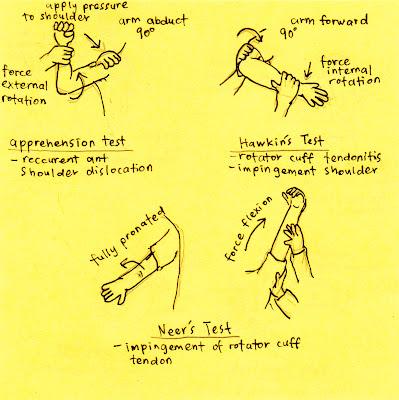 apply pressure
to shoulder
arm abduct
90°
force
external
rotation
apprehension test
- reccurent ant
shoulder dislocation
arm forward
90°
force
internal
rotation
Hawkin's Test
- rotator cuff tendonitis
- impingement shoulder
fully pronated
force flexion
Neer's Test
- impingement of rotator cuff
tendon